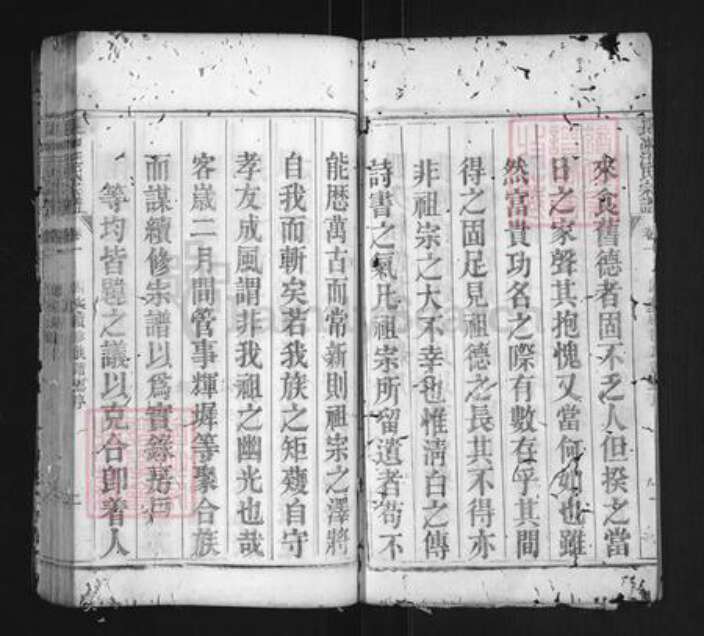 來食舊德者固不乏人但揆之當
日之家聲其抱愧又當何如也雖
然富貴功名之際有數存乎其間
得之固足見祖德之長其不得亦
非祖宗之大不幸也惟清白之傳
詩書之氣凡祖宗所留遺者苟不
能歷萬古而常新則祖宗之澤將
自我而斬矣若我族之矩矱自守
孝友成風謂非我祖之幽光也哉
客歲二月間管事輝墀等聚合族
而謀續修宗譜以為實錄房戶
等均皆韙之議以克合卽着人